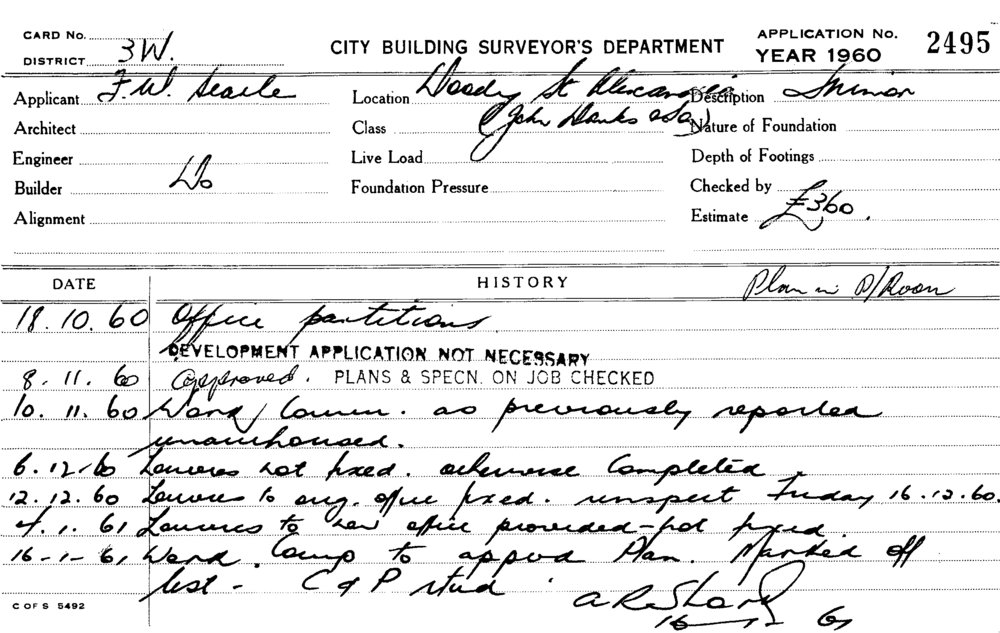 CARD No.
DISTRICT 3W.
CITY BUILDING SURVEYOR'S DEPARTMENT
APPLICATION No. 2495
YEAR 1960
Applicant F.W. Searle
Location Doody St Alexandria
Description Minor
Architect
Class (John Danks & Son)
Nature of Foundation
Engineer
Live Load
Depth of Footings
Builder Do
Foundation Pressure
Checked by
Alignment
Estimate £360.
DATE HISTORY Plan in P/Room
18.10.60 Office partitions
DEVELOPMENT APPLICATION NOT NECESSARY
8.11.60 Approved. PLANS & SPECN. ON JOB CHECKED
10.11.60 Work Comm. as previously reported
unauthorised.
6.12.60 Louvres not fixed. otherwise Completed.
12.12.60 Louvres to orig. office fixed. reinspect Friday 16.12.60.
4.1.61 Louvres to new office provided - not fixed
16-1-61 Work. Comp to appvd Plan. Marked off
list -
16-1-61
C OF S 5492